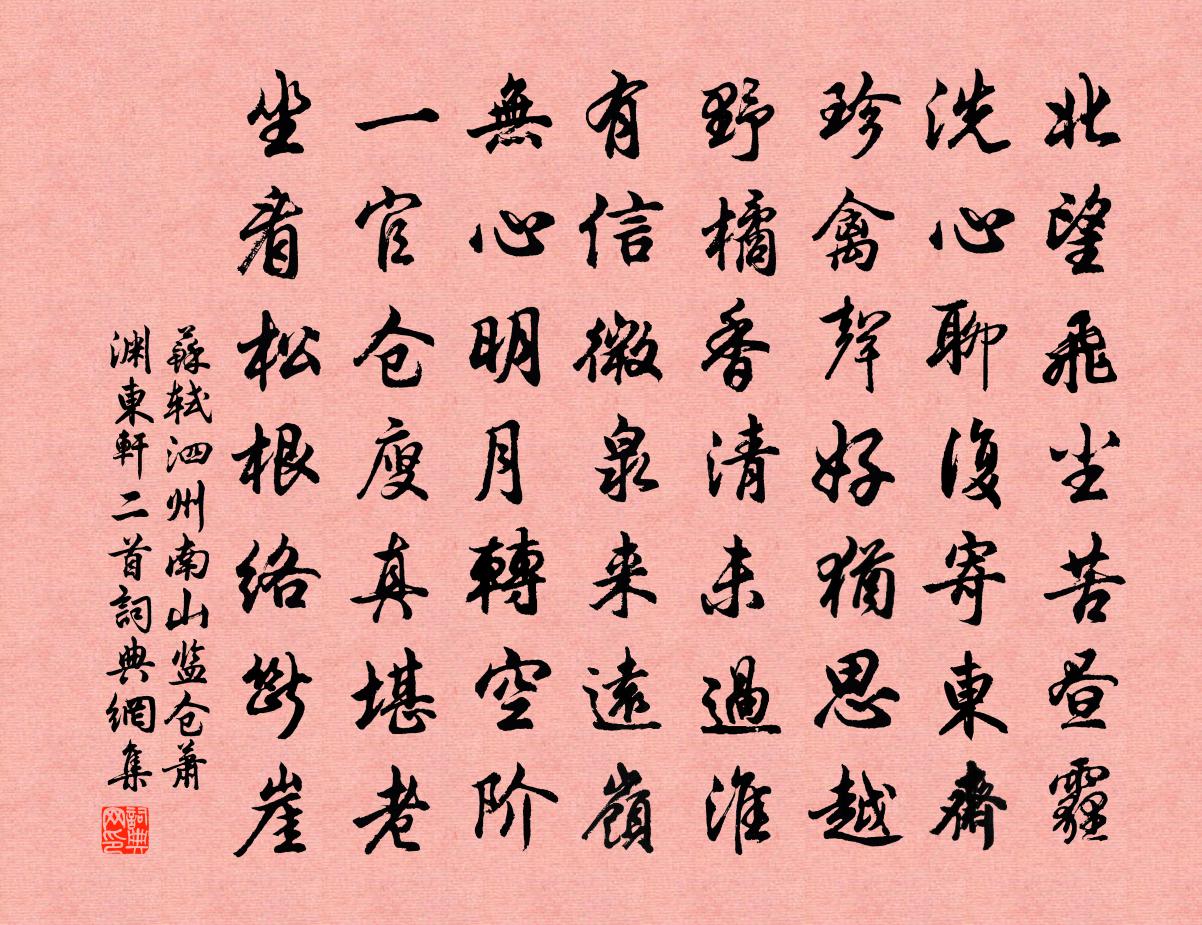 北望飛尘苦昼霾
洗心聊復寄東齋
珍禽聲好猶思越
野橘香清未過淮
有信微泉来遠嶺
無心明月轉空阶
一官仓庾真堪老
坐看松根络斷崖
蘇轼泗州南山监仓萧
渊東軒二首詞典網集
詞典網印